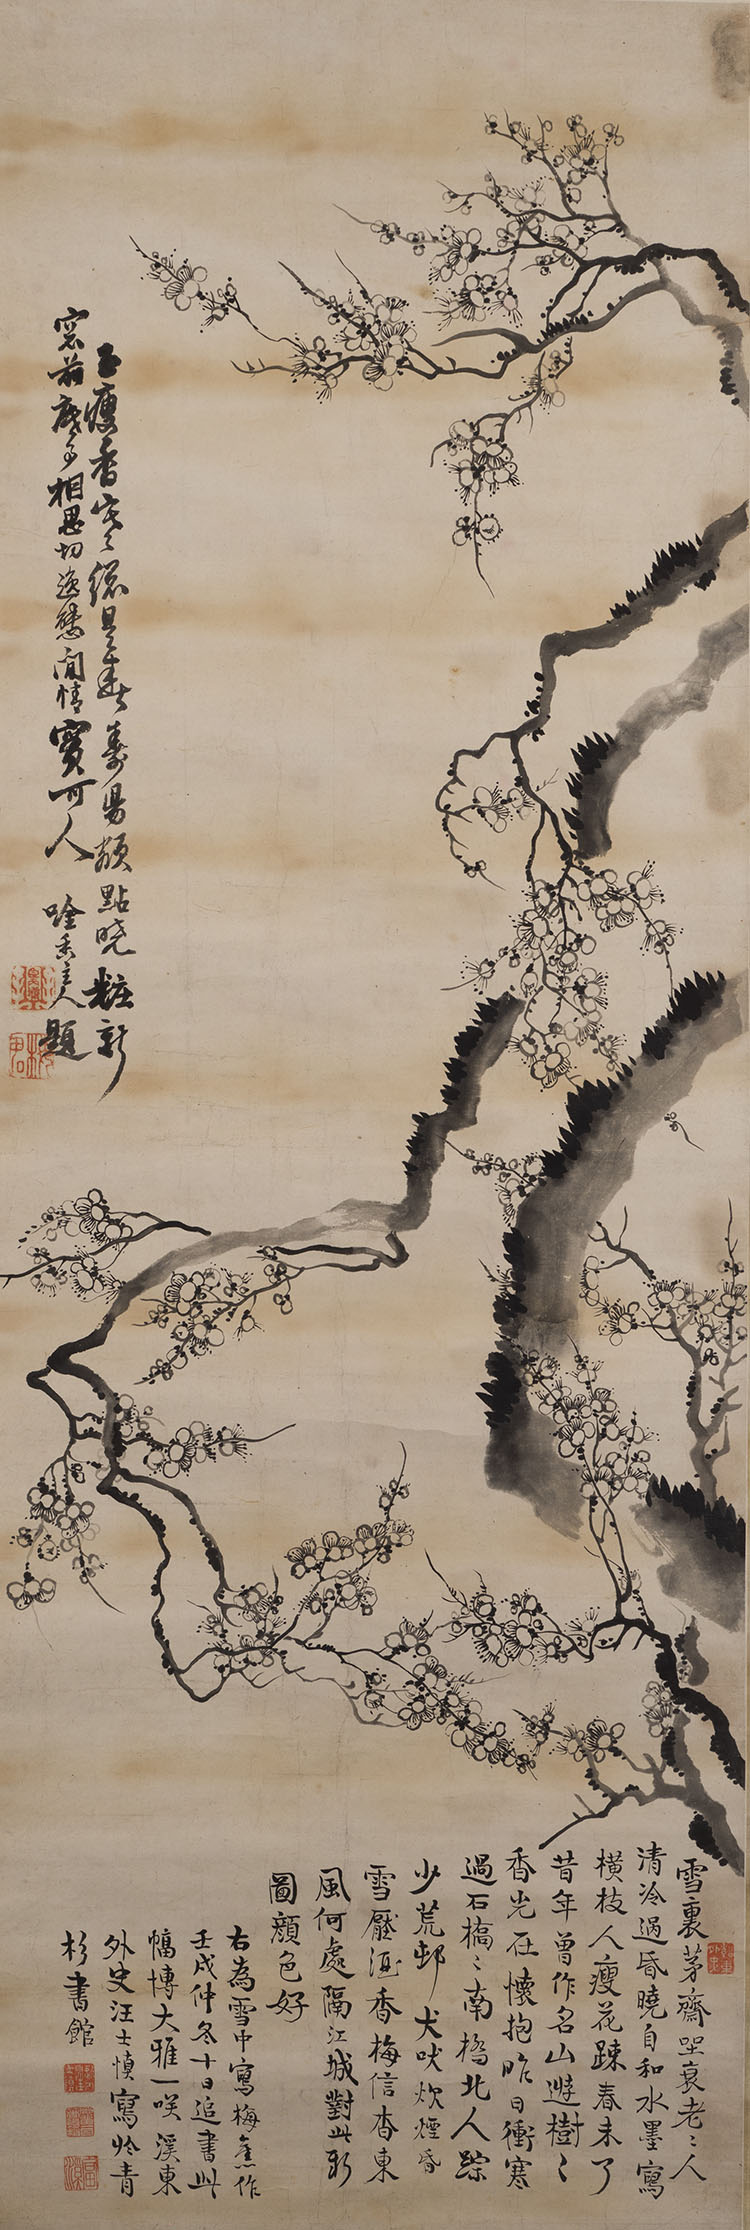 玉瘦香寒總是春壽陽額點曉粧新
窓前幾多相思切逸態閒情實可人
唫香主人題
雪裏茅齋坐衰老〻人
清冷過昏曉自和水墨寫
橫枝人瘦花踈春未了
昔年曾作名山遊樹〻
香光在懷抱昨日衝寒
過石橋〻南橋北人踪
少荒邨犬吠炊煙昏
雪壓酒香梅信杳東
風何處隔江城對此新
圖顏色好
右為雪中寫梅舊作
壬戌仲冬十日追書此
幅博大雅一咲溪東
外史汪士慎寫於青
杉書館